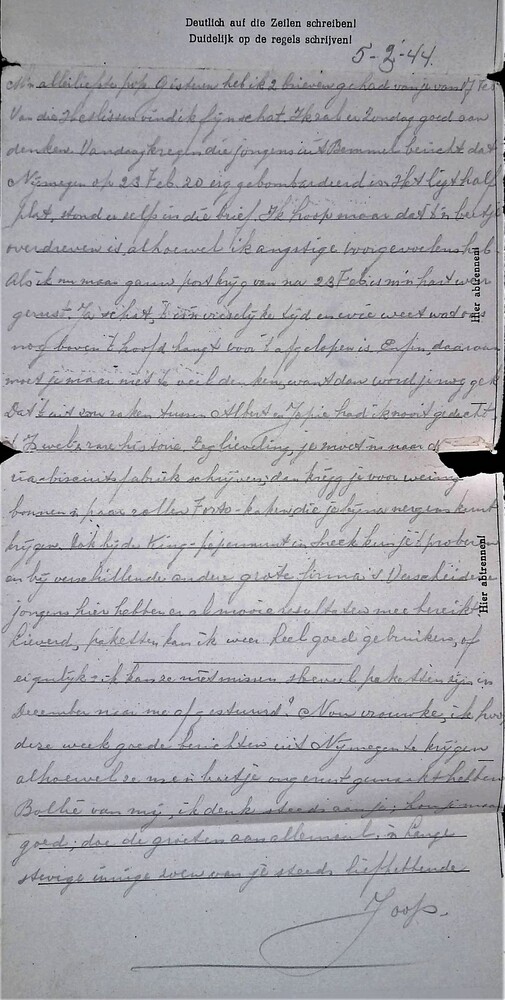 Deutlich auf die Zeilen schreiben!
Duidelijk op de regels schrijven!
5-3-'44.
M'n allerliefste pop, Gisteren heb ik 2 brieven gehad van je van Feb.
Van die vind ik fijn schat. Ik zal er Zondag goed aan
denken. Vandaag kregen die jongens uit Bemmel bericht dat
Nijmegen op 23 Feb. zo erg gebombardeerd is. Het ligt half
plat, stond er zelf in die brief. Ik hoop maar dat 't 'n beetje
overdreven is, alhoewel ik angstige voorgevoelens heb.
Als ik nu maar gauw post krijg van na 23 Feb is m'n hart weer
gerust. Ja schat, 't is 'n vreselijke tijd en wie weet wat ons
nog boven 't hoofd hangt voor 't afgelopen is. Enfin, daaraan
moet je maar niet te veel denken, want dan word je nog gek
Dat 't uit zou raken tussen Albert en Jopie had ik nooit gedacht
't Is wel 'n rare historie. Zeg lieveling, je moet 'ns naar de
ria-biscuitsfabriek schrijven, dan krijg je voor weinig
bonnen 'n paar rollen koken, die je bijna nergens kunt
krijgen. Ook bij de King-pepermunt in Sneek kun je 't proberen
en bij verschillende andere grote firma's. Verscheidene
jongens hier hebben er al mooie resultaten mee bereikt.
Lieverd, paketten kan ik weer heel goed gebruiken, of
eigenlijk - ik kan ze niet missen. Hoeveel paketten zijn in
December naar me afgestuurd? Nou vrouwke, ik hoop
deze week goede berichten uit Nijmegen te krijgen
alhoewel ze me 'n beetje ongerust gemaakt hebben
van mij, ik denk steeds aan je; hou je maar
goed; doe de groeten aan allemaal, 'n lange
stevige innige zoen van je steeds liefhebbende
Joop.
Hier abtrennen!
Hier abtrennen!